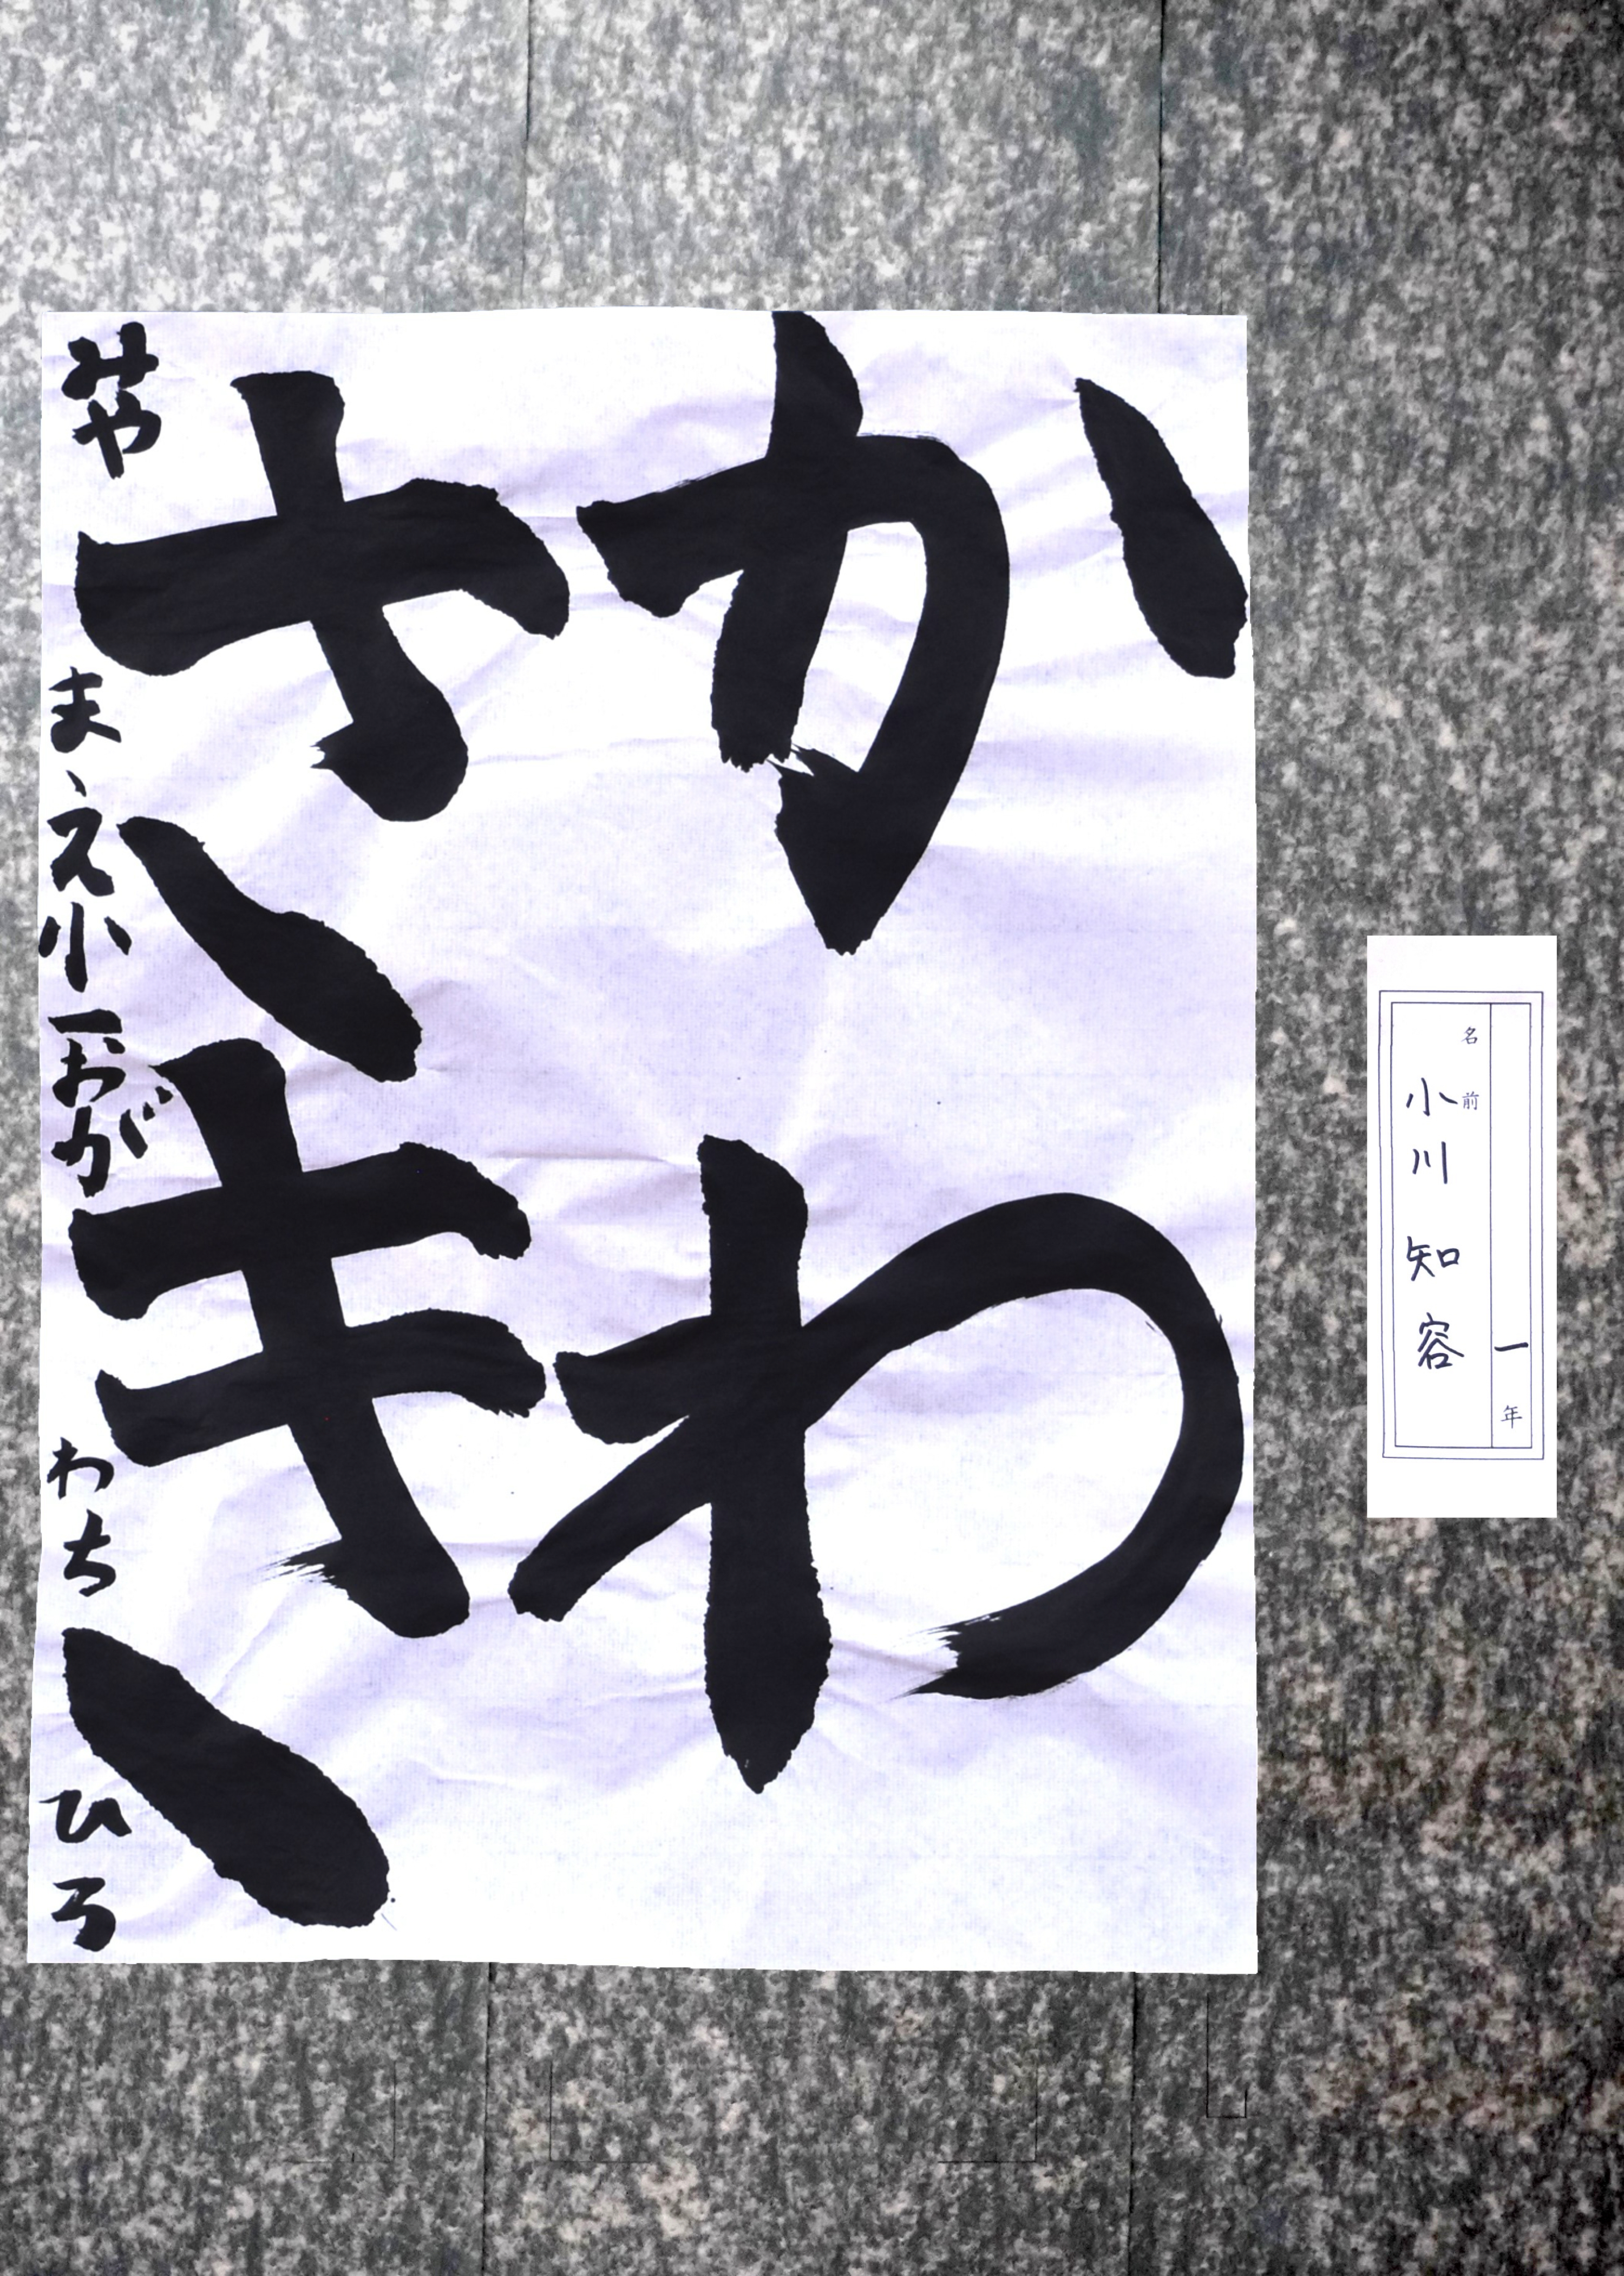 かわ
さき
みやまえ小一おがわちひろ
一年
名前
小川知容